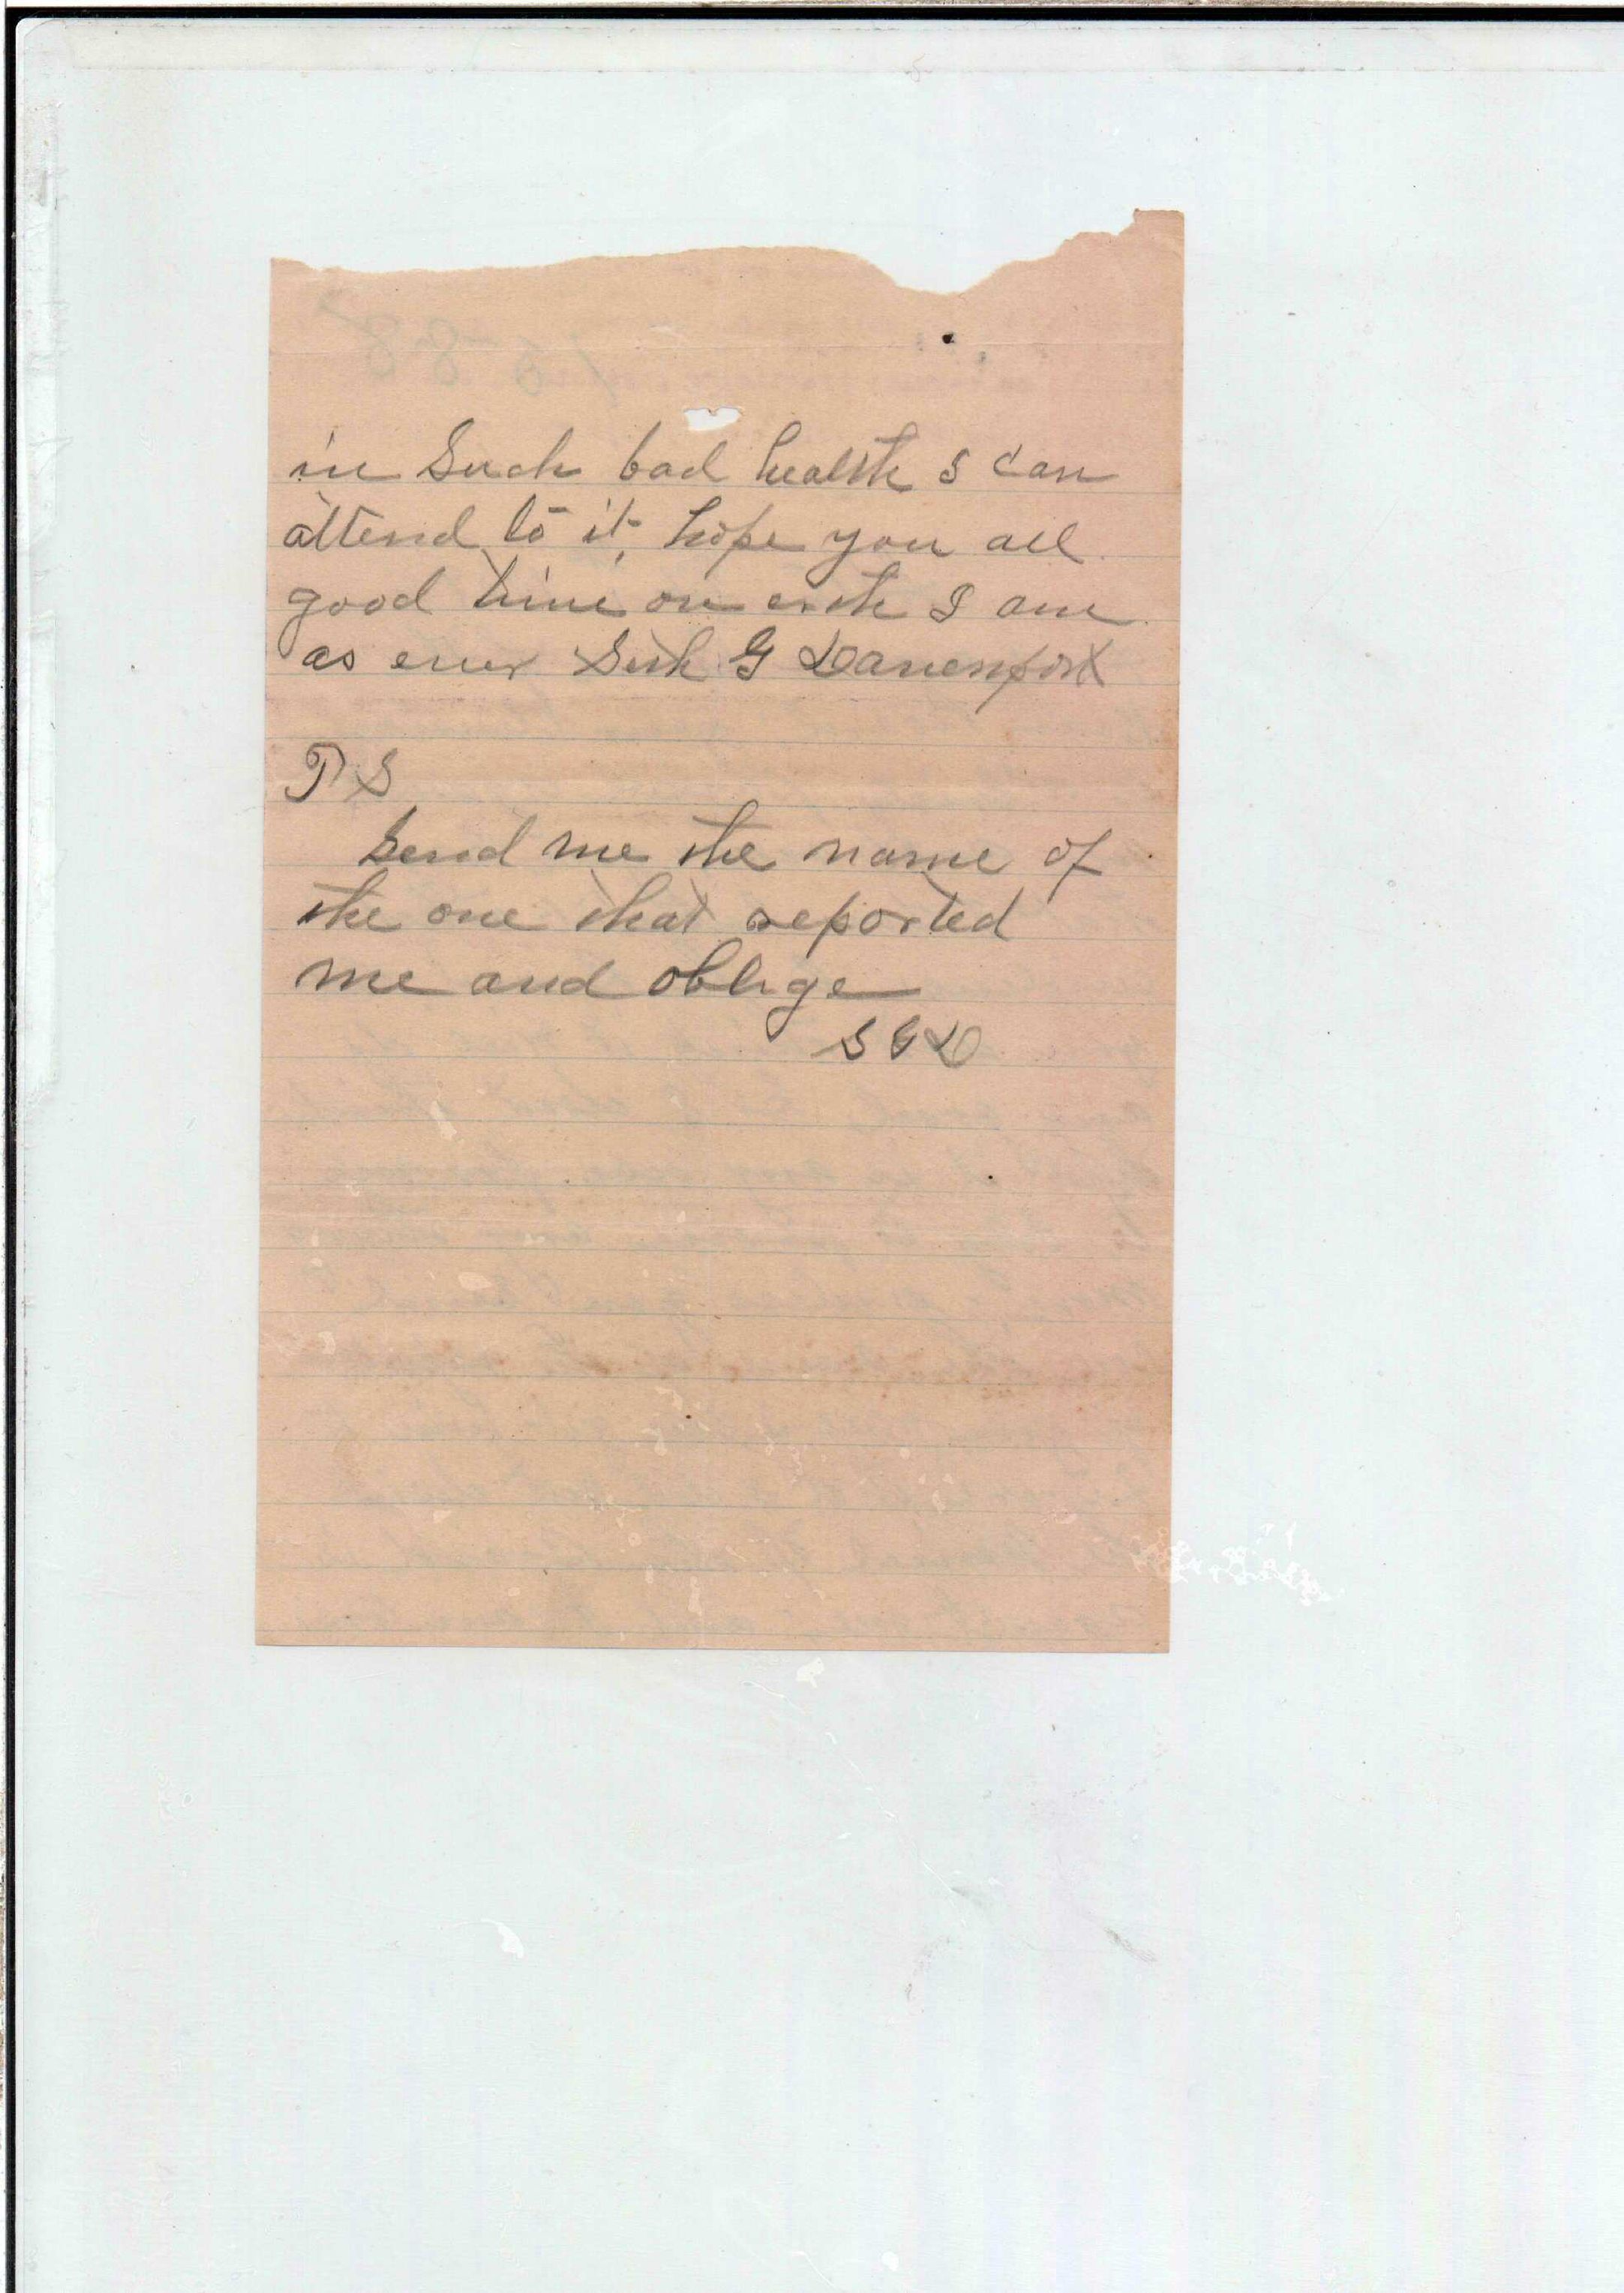 in Such bad health I can
attend to it, hope you all
good time on erth I am
as ever G Davenport
P S
Send me the name of
the one that reported
me and oblige
S G D